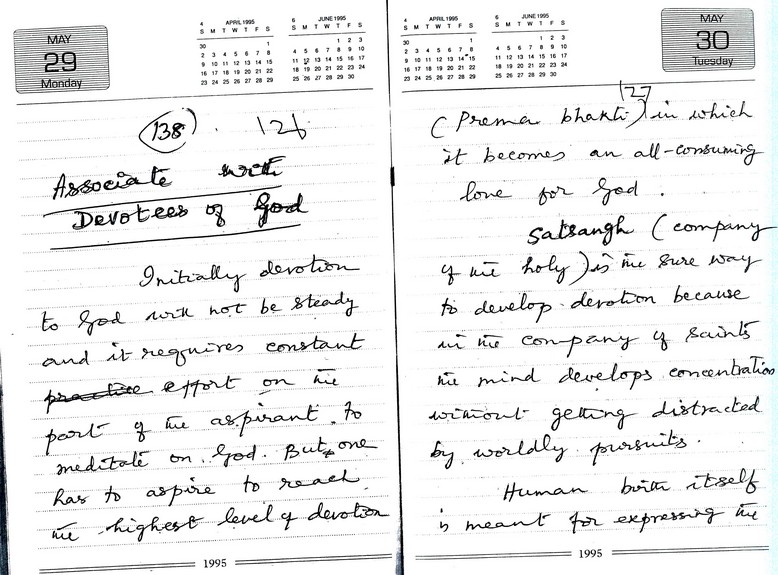 MAY
29
Monday
4 APRIL 1995
S M T W T F S
30 1
2 3 4 5 6 7 8
9 10 11 12 13 14 15
16 17 18 19 20 21 22
23 24 25 26 27 28 29
6 JUNE 1995
S M T W T F S
1 2 3
4 5 6 7 8 9 10
11 12 13 14 15 16 17
18 19 20 21 22 23 24
25 26 27 28 29 30
138 . 126
Associate with
Devotees of God
Initially devotion
to God will not be steady
and it requires constant
practice effort on the
part of the aspirant to
meditate on God. But, one
has to aspire to reach
the highest level of devotion
1995
4 APRIL 1995
S M T W T F S
30 1
2 3 4 5 6 7 8
9 10 11 12 13 14 15
16 17 18 19 20 21 22
23 24 25 26 27 28 29
6 JUNE 1995
S M T W T F S
1 2 3
4 5 6 7 8 9 10
11 12 13 14 15 16 17
18 19 20 21 22 23 24
25 26 27 28 29 30
MAY
30
Tuesday
127
(Prema bhakti) in which
it becomes an all-consuming
love for God.
Satsangh (company
of the holy) is the sure way
to develop devotion because
in the company of saints
the mind develops concentration
without getting distracted
by worldly pursuits.
Human birth itself
is meant for expressing the
1995